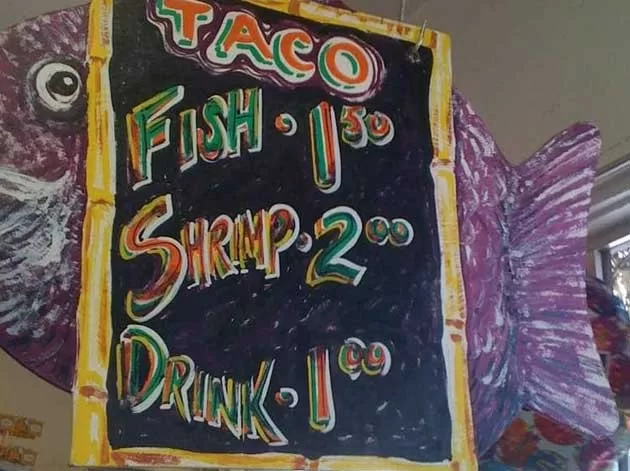 TACO
FISH • 1 50
SHRIMP • 2 00
DRINK • 1 00